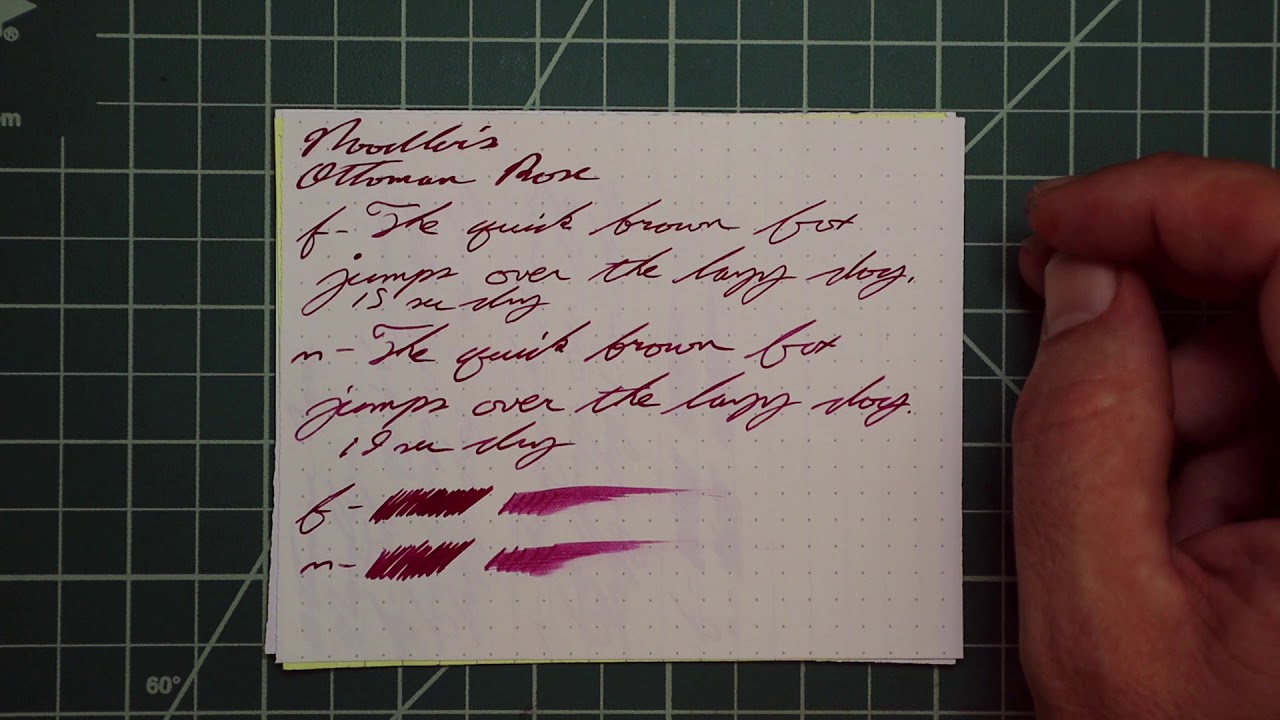 ®
m
Noodler's
Ottoman Rose
f - The quick brown fox
jumps over the lazy dog.
15 sec dry
m - The quick brown fox
jumps over the lazy dog.
19 sec dry
f -
m -
60°